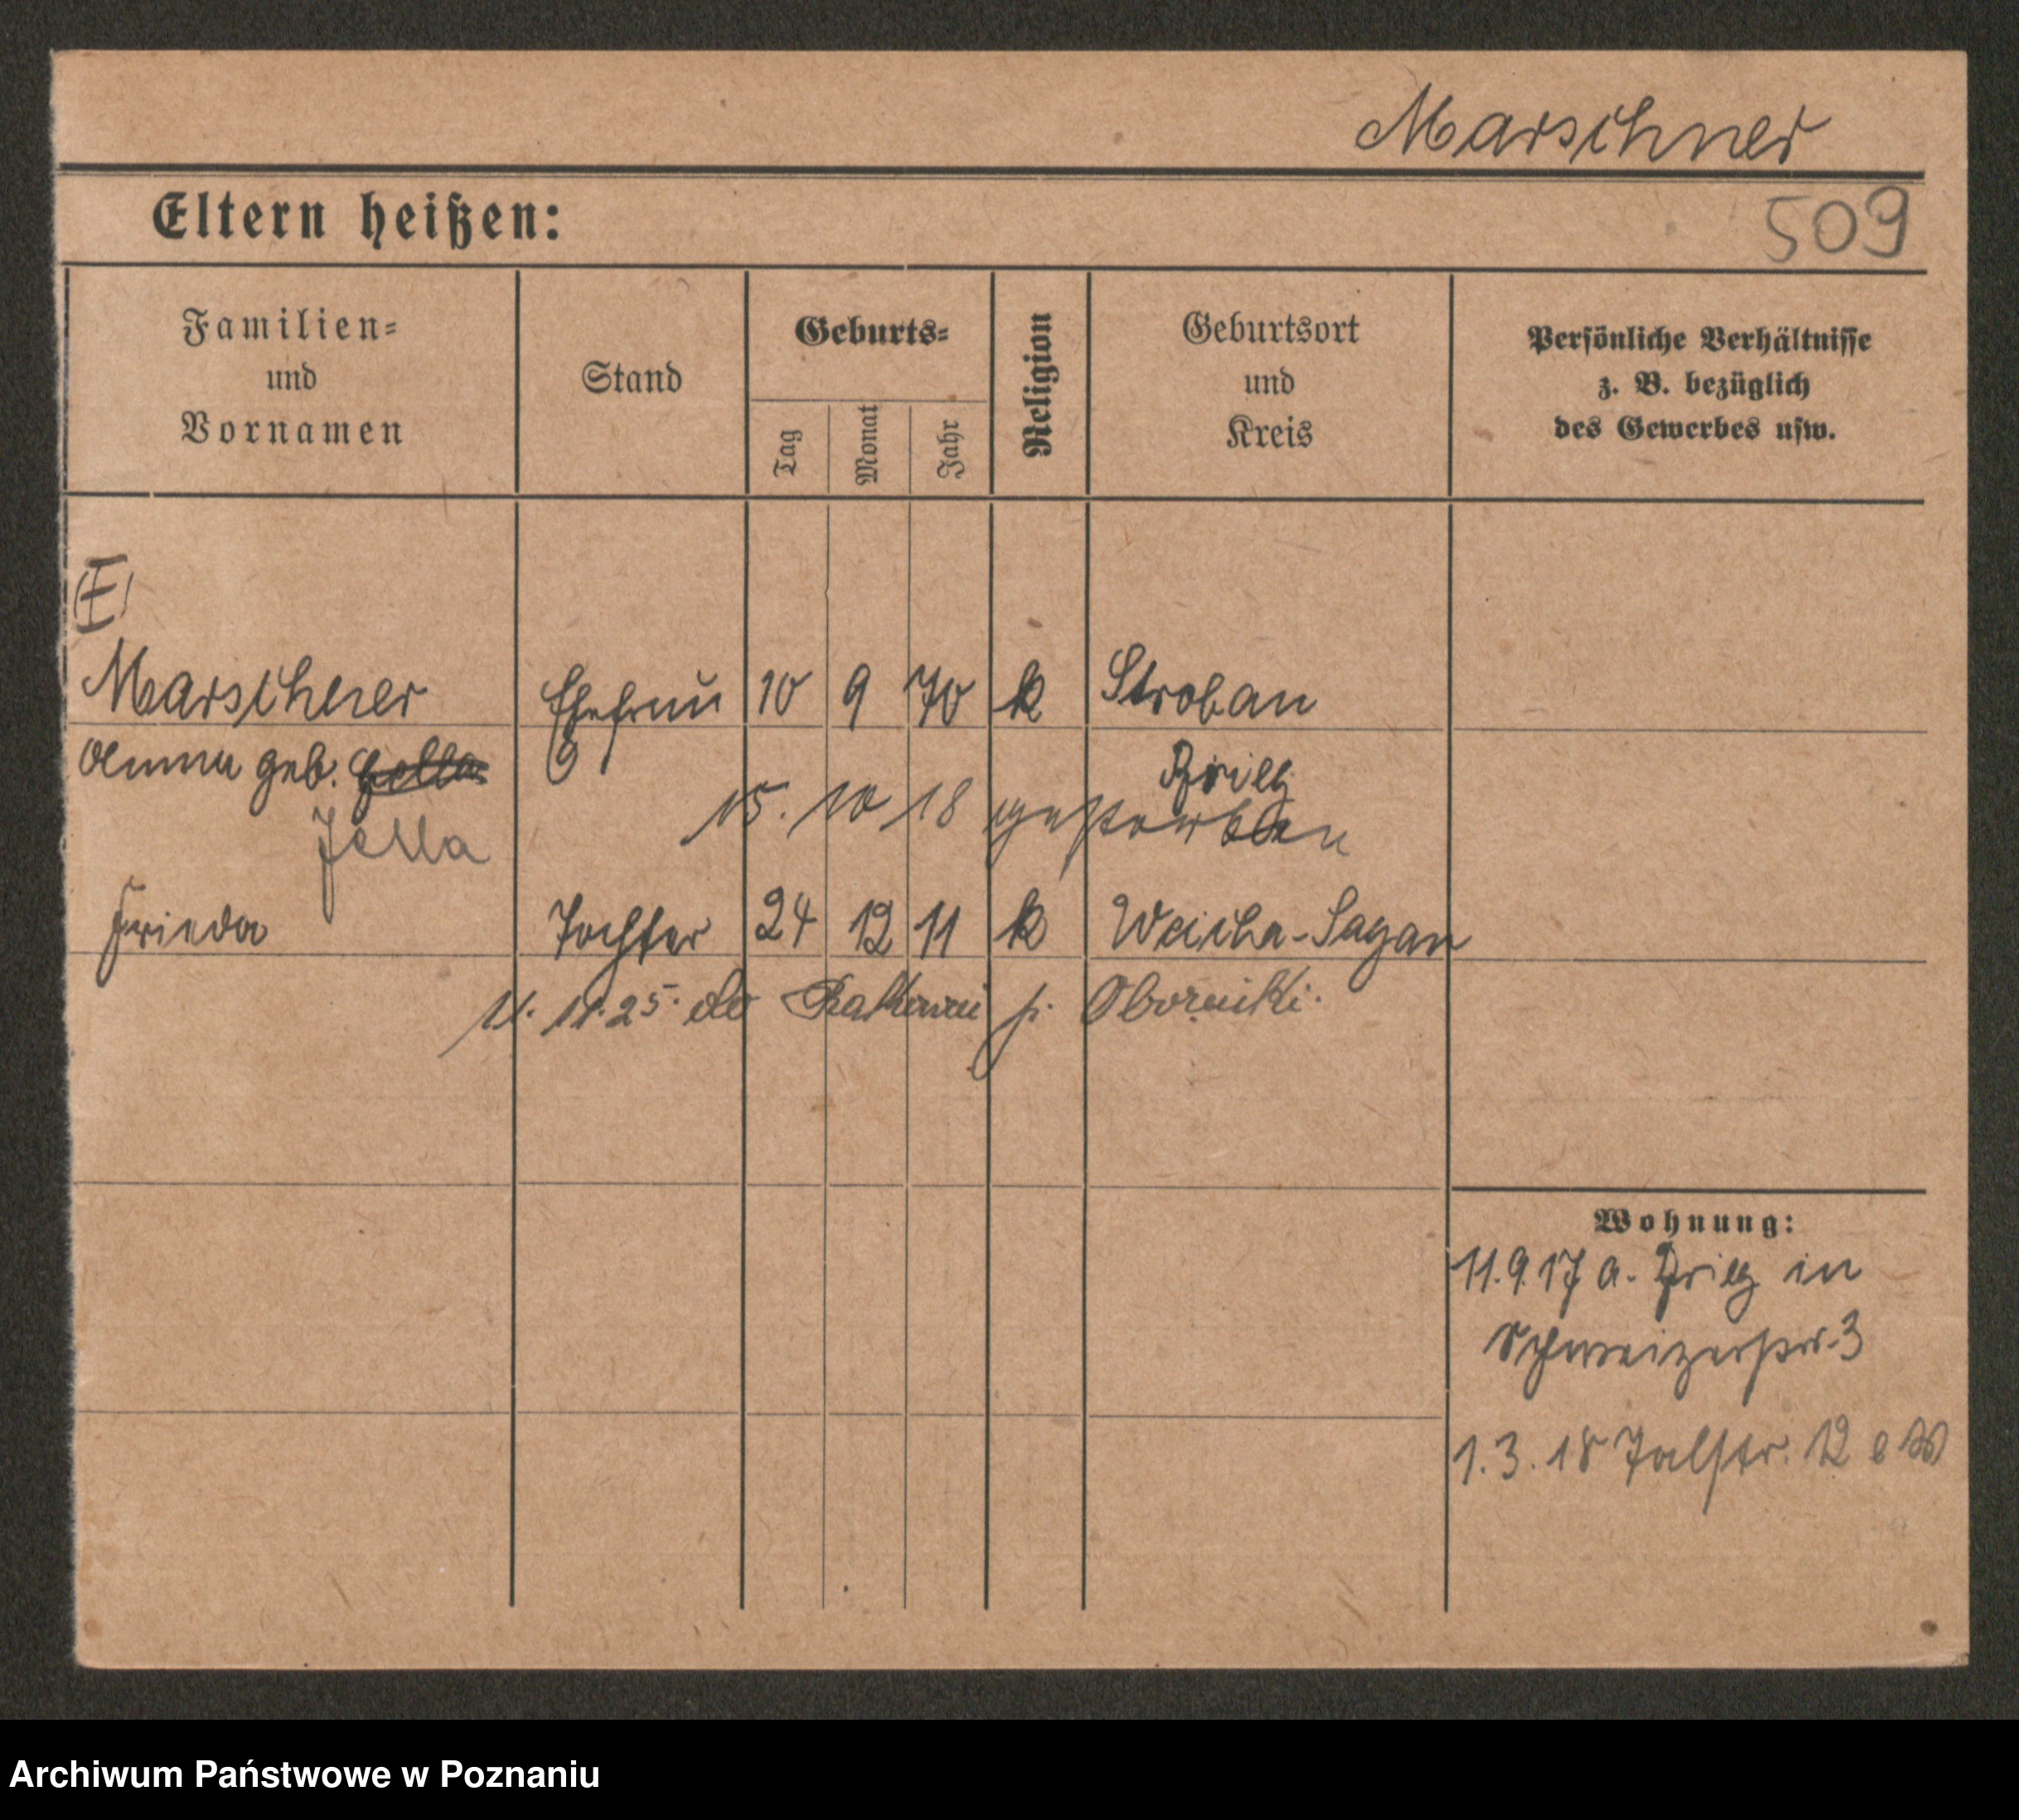 Marschner
Eltern heißen:
509
Familien=
und
Vornamen
Stand
Geburts=
Tag
Monat
Jahr
Religion
Geburtsort
und
Kreis
Persönliche Verhältnisse
z. B. bezüglich
des Gewerbes usw.
E
Marschner Ehefrau 10 9 70 k Stroban
Anna geb. Brieg
Jella
15. 10 18 gestorben
Frieda Tochter 24 12 11 k Weicha-Sagan
11. 11. 25. do p. Oborniki.
Wohnung:
11.9.17 a. Brieg in
Schweizerstr. 3
1.3.18 Talstr. 12
Archiwum Państwowe w Poznaniu